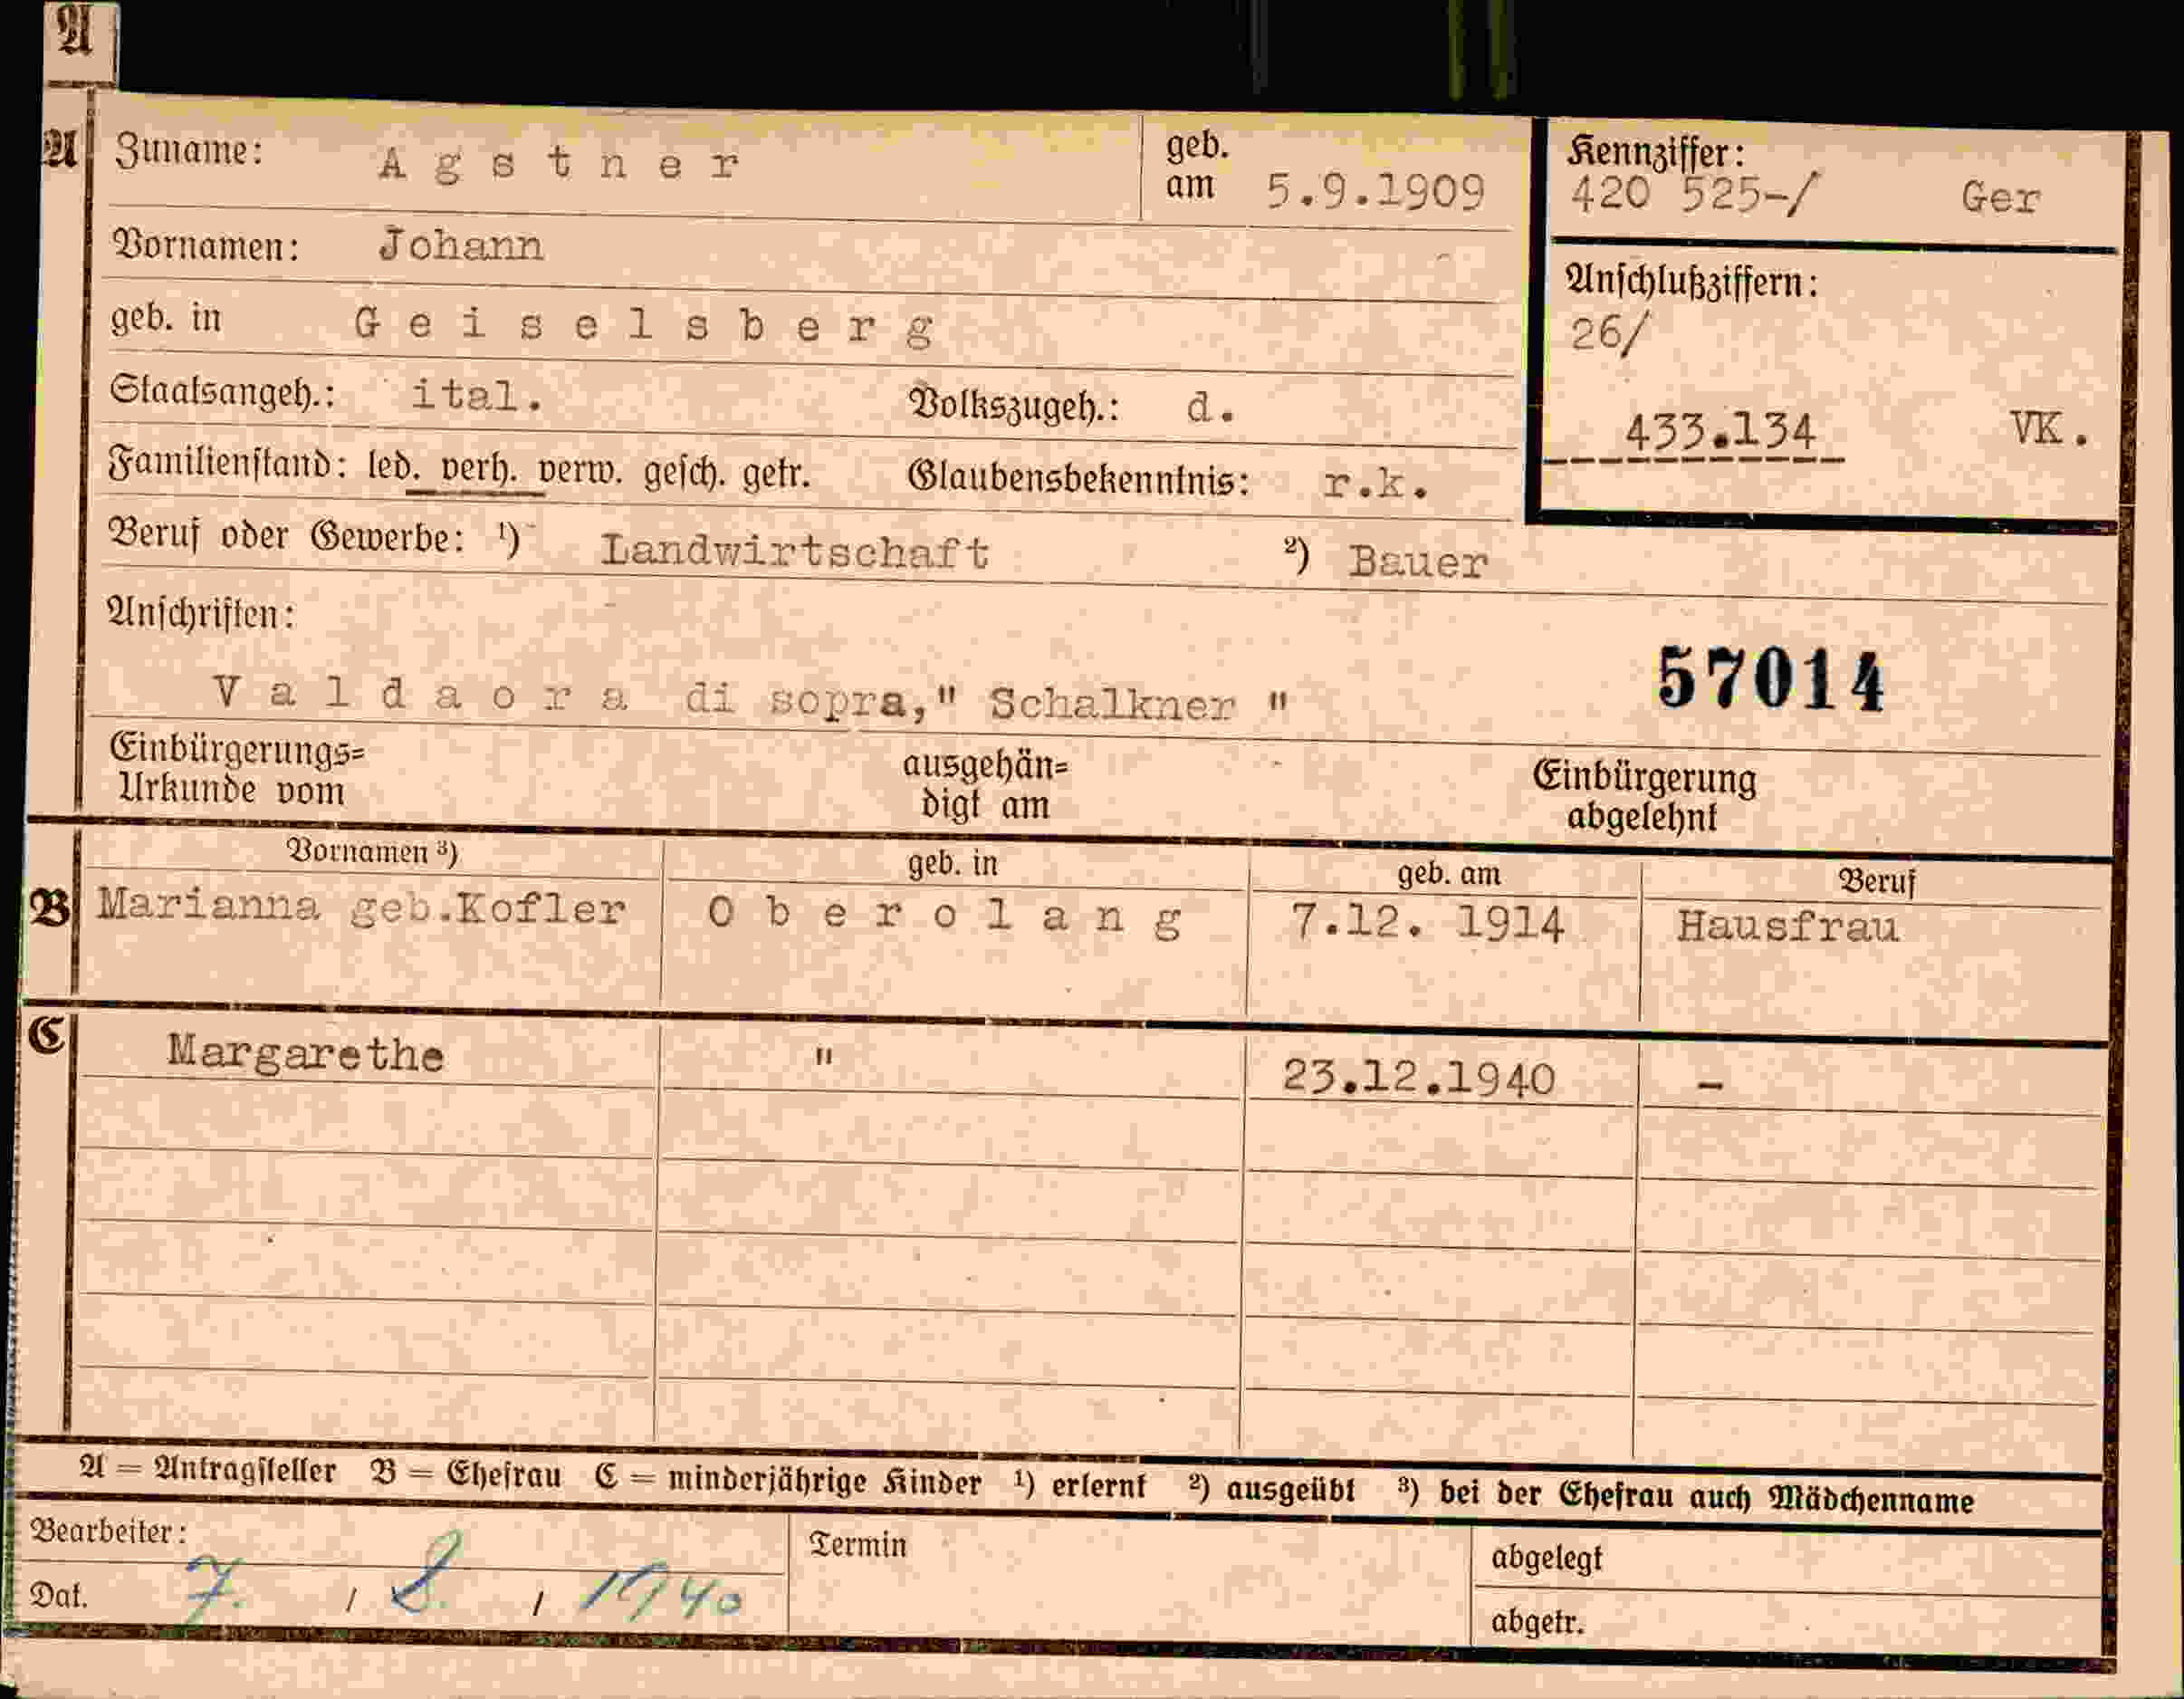 A
A Zuname: Agstner geb. am 5.9.1909 Kennziffer: 420 525-/ Ger
Vornamen: Johann
geb. in Geiselsberg Anschlußziffern: 26/
Staatsangeh.: ital. Volkszugeh.: d. 433.134 VK.
Familienstand: led. verh. verw. gesch. getr. Glaubensbekenntnis: r.k.
Beruf oder Gewerbe: ¹) Landwirtschaft ²) Bauer
Anschriften:
57014
Valdaora di sopra," Schalkner "
Einbürgerungs= ausgehän= Einbürgerung
Urkunde vom digt am abgelehnt
Vornamen ³) geb. in geb. am Beruf
B Marianna geb.Kofler Oberolang 7.12. 1914 Hausfrau
C Margarethe " 23.12.1940 -
A = Antragsteller B = Ehefrau C = minderjährige Kinder ¹) erlernt ²) ausgeübt ³) bei der Ehefrau auch Mädchenname
Bearbeiter: Termin abgelegt
Dat. 7. / 2. / 1940 abgetr.